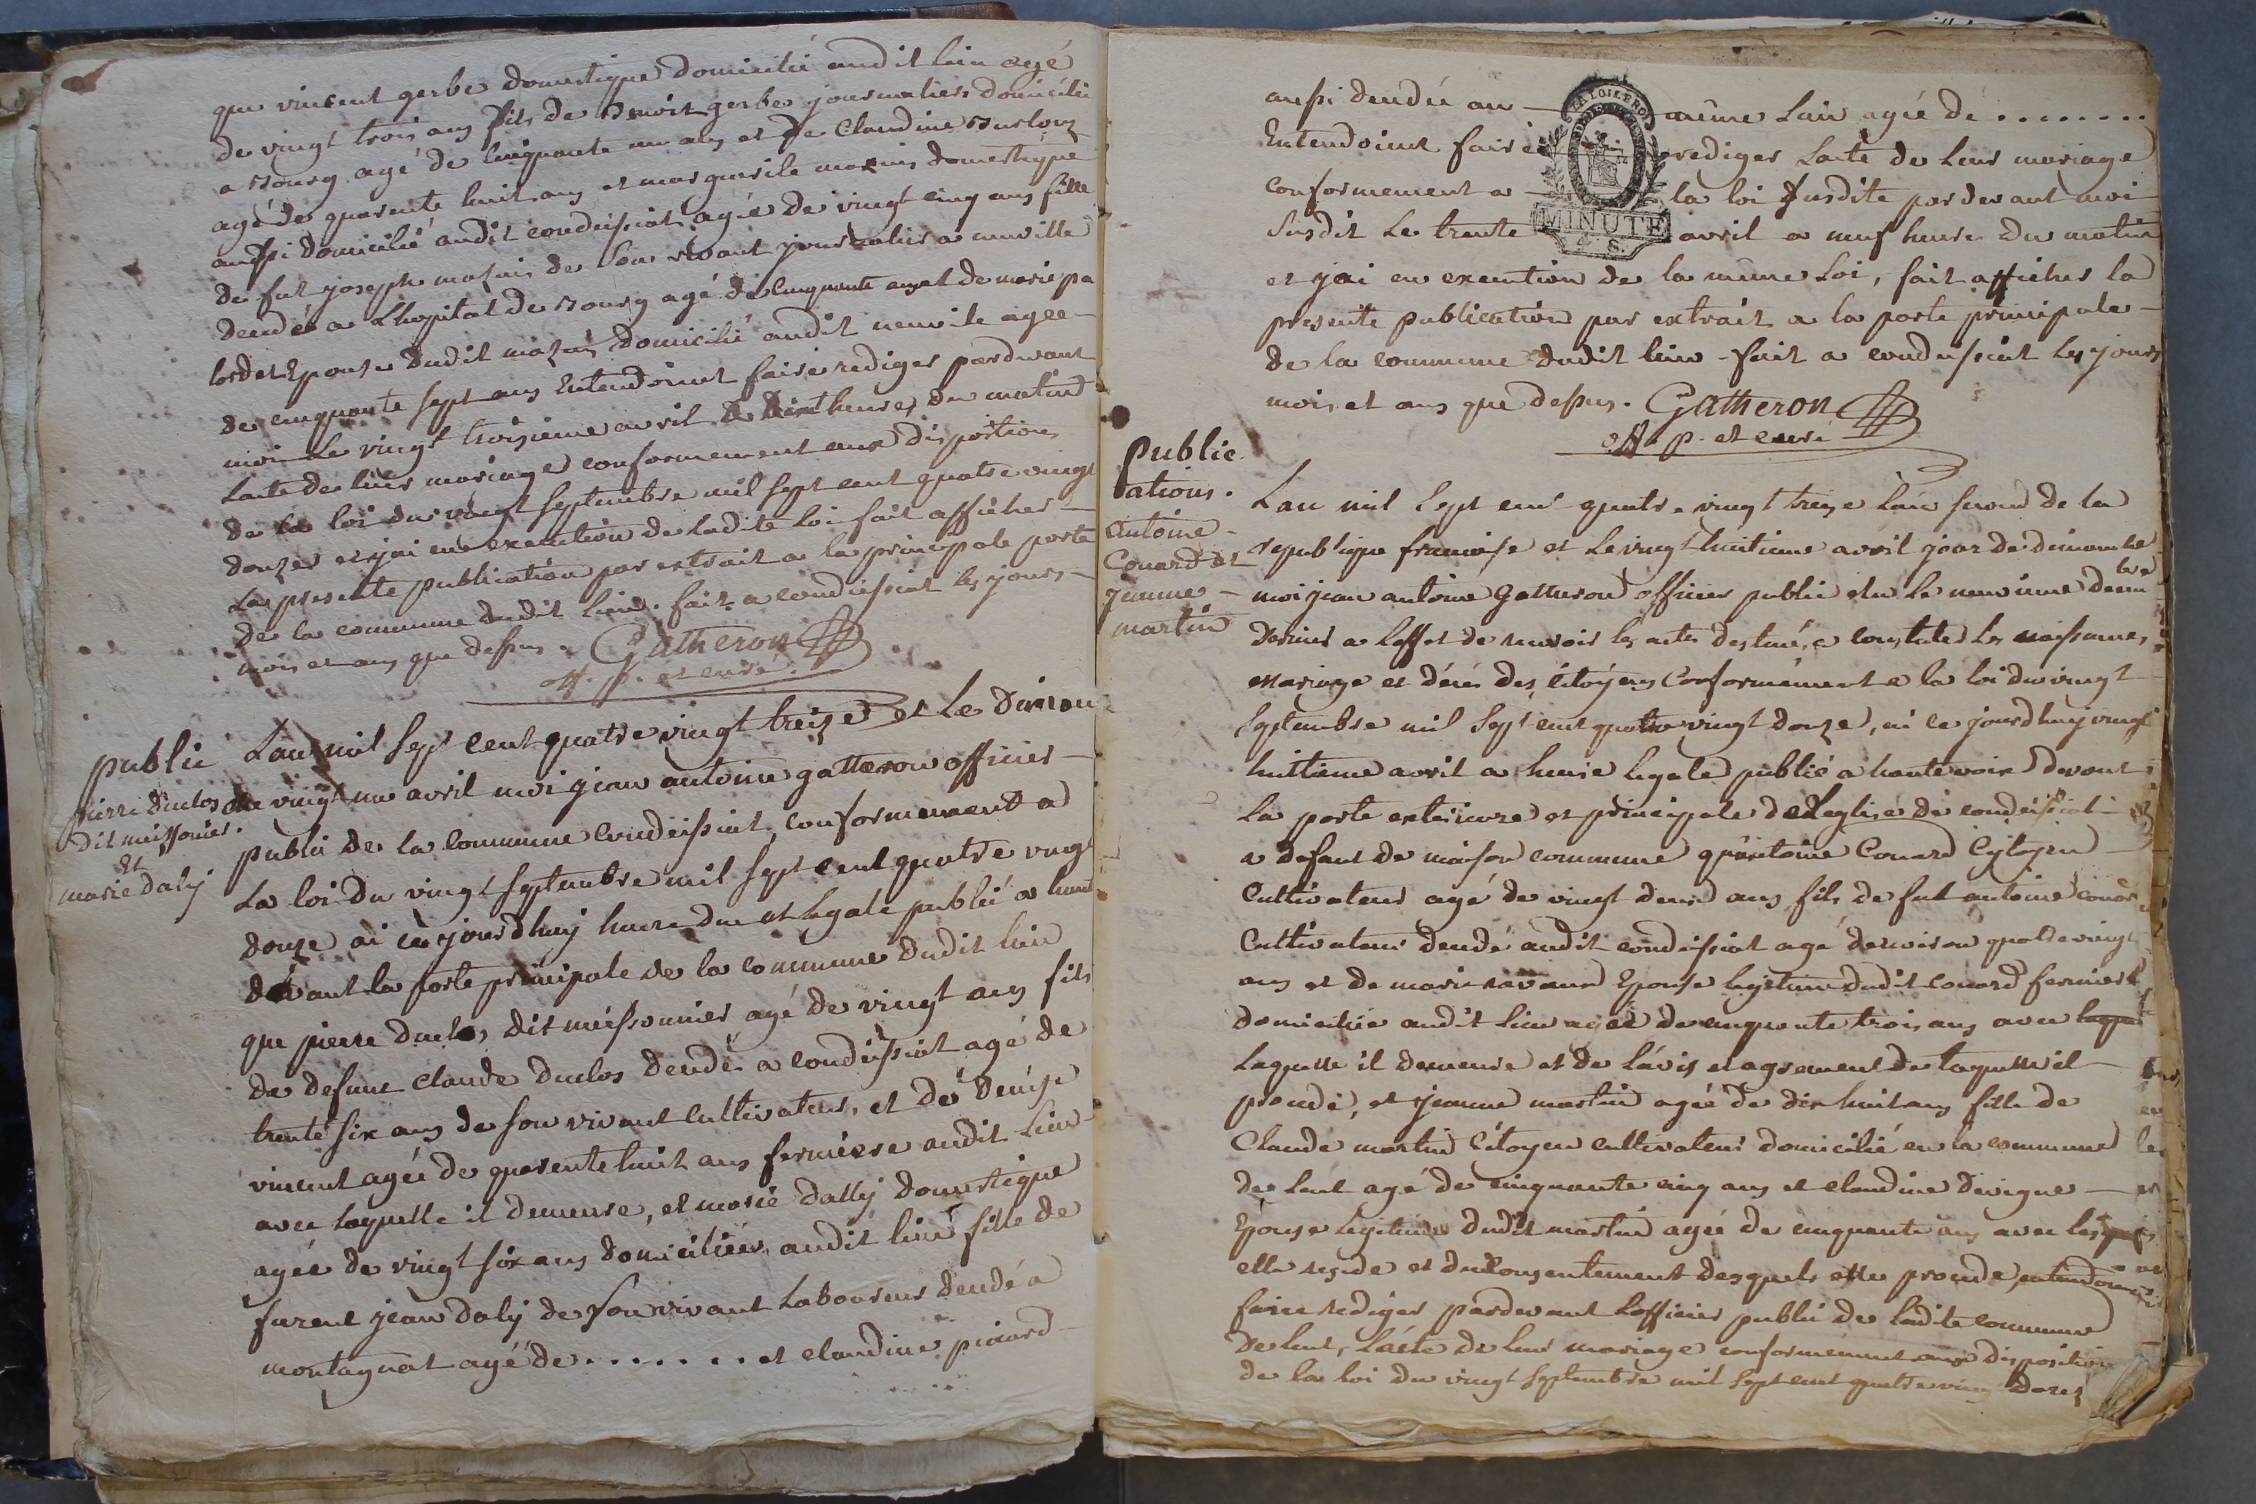 que vincent gerbe domestique domicilié audit lieu agé
de vingt trois ans fils de Benoit gerbe journaliers domicilié
a Bourg agé de cinquante un ans et de Claudine
agé de quarente huit ans et marguerite domestique
aussi domicilié audit condeissiat agée de vingt cinq ans fille
de fut joseph de son vivant journalier a neuville
decedé a Lhopital de Bourg agé de cinquante ans et de marie pa
lordet Epouse dudit domicilié audit neuvile agee
de cinquante sept ans Entendoient faire rediger pardevant
moi le vingt troisieme avril a heures du matin
Lacte de leur mariage conformement aux dispositions
de la loi du vingt septembre mil sept cent quatre vingt
douze et j'ai en execution de ladite loi fait afficher
La presente publication par extrait a la principale porte
de la commune dudit lieu. fait a condeissiat les jours
mois et ans que dessus. Gatheron
off. p. et curé.
public
pierre duclos
dit meissonier.
et
marie daly
Lan mil sept cent quatre vingt treize et le dimanc
vingt un avril moi jean antoine gatteron officier
public de la commune condeissiat, conformement a
La loi du vingt septembre mil sept cent quatre vingt
douze ai cejourdhuy heure due et legale publié a haute
devant la porte principale de la commune dudit lieu
que pierre duclos dit meissonnier agé de vingt ans fils
de defunt Claude duclos decedé a condeissiat agé de
trente six ans de son vivant cultivateur, et de denise
vincent agée de quarente huit ans fermiere audit Lieu
avec laquelle il demeure, et marie dally domestique
agée de vingt six ans domiciliée audit lieu fille de
furent jean daly de son vivant Laboureur decedé a
montagnat agé de ........ et claudine picard
aussi decedée au même Lieu agée de ........
Entendoient faire rediger Lacte de leur mariage
conformement a la loi susdite pardevant moi
susdit Le trente avril a neuf heure du matin
LA LOI LE ROI
MINUTE
4. S.
et j'ai en execution de la même Loi, fait afficher la
presente publication par extrait a la porte principale
de la commune dudit lieu - fait a condeissiat les jours
mois et ans que dessus. Gatheron
off. p. et curé
Public
ations.
antoine
Couard et
jeanne
martin
Lan mil sept cent quatre vingt treize l'an second de la
republique francoise et le vingt huitieme avril jour de dimanche
moi jean antoine Gatteron officier public elu le neuvieme decem
bre
dernier a leffet de recevoir les actes destinés a constater les naissances
mariage et décés des citoyens conformément a la loi du vingt
septembre mil sept cent quatre vingt douze, ai ce jourdhuy vingt
huitieme avril a heure legale publié a haute voix devant
La porte exterieure et principale de Leglise de condeissiat
a defaut de maison commune qu'antoine Couard Citoyen
Cultivateur agé de vingt deux ans fils de fut antoine couard
Cultivateur decedé audit condeissiat agé denviron quatre vingt
ans et de marie Epouse legitime dudit couard fermiere
domiciliée audit lieu agée de cinquante trois ans avec
Laquelle il demeure et de lávis et agrement de laquelle il
procede, et jeanne martin agée de dix huit ans fille de
Claude martin citoyen cultivateur domicilié en la commune
de Lent agé de cinquante cinq ans et claudine devigne
Epouse legitime dudit martin agée de cinquante ans avec lesquels
elle reside et du consentement desquels elle procede, entendoient
faire rediger pardevant Lofficier public de ladite commune
de lent, Lácte de leur mariage conformément aux disposition
de la loi du vingt septembre mil sept cent quatre vingt douze